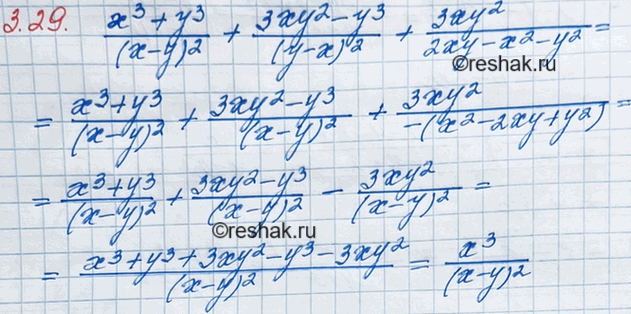 3.29. (x³+y³)/(x-y)² + (3xy²-y³)/(y-x)² + 3xy²/(2xy-x²-y²) =
©reshak.ru
= (x³+y³)/(x-y)² + (3xy²-y³)/(x-y)² + 3xy²/(-(x²-2xy+y²)) =
= (x³+y³)/(x-y)² + (3xy²-y³)/(x-y)² - 3xy²/(x-y)² =
©reshak.ru
= (x³+y³+3xy²-y³-3xy²)/(x-y)² = x³/(x-y)²